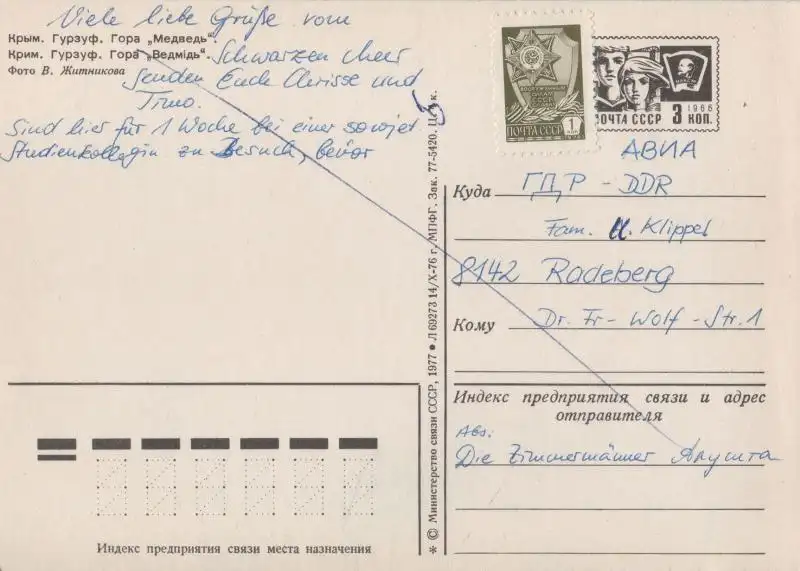 Viele liebe Grüße vom
Крым. Гурзуф. Гора „Медведь".
Крим. Гурзуф. Гора „Ведмідь".
Фото В. Житникова
Schwarzen Meer
senden Euch Chrisse und
Timo.
Sind hier für 1 Woche bei einer sowjet.
Studienkollegin zu Besuch, bevor
© Министерство связи СССР, 1977 • Л 69273 14/X-76 г. МПФГ. Зак. 77-5420. Ц. к.
ВООРУЖЕННЫМ СИЛАМ СССР
ПОЧТА СССР 1
1966
ПОЧТА СССР 3 КОП.
АВИА
Куда ГДР - DDR
Fam. H. Klippel
8142 Radeberg
Кому Dr. Fr-Wolf-Str. 1
Индекс предприятия связи и адрес
отправителя
Abs:
Die Zimmermänner Алушта
Индекс предприятия связи места назначения